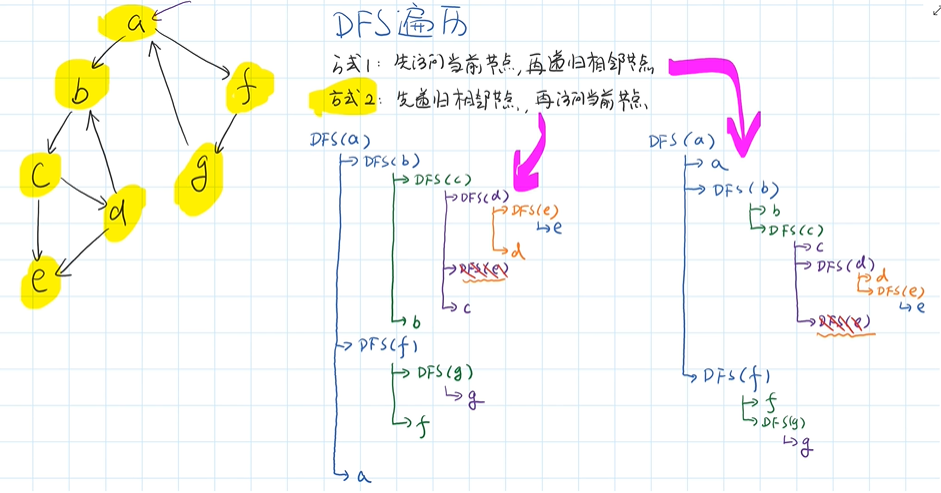 DFS遍历
方式1: 先访问当前节点,再递归相邻节点
方式2: 先递归相邻节点,再访问当前节点
a
b
f
c
g
d
e
DFS(a)
DFS(b)
DFS(c)
DFS(d)
DFS(e)
e
d
DFS(e)
c
b
DFS(f)
DFS(g)
g
f
a
DFS(a)
a
DFS(b)
b
DFS(c)
c
DFS(d)
d
DFS(e)
e
DFS(e)
DFS(f)
f
DFS(g)
g